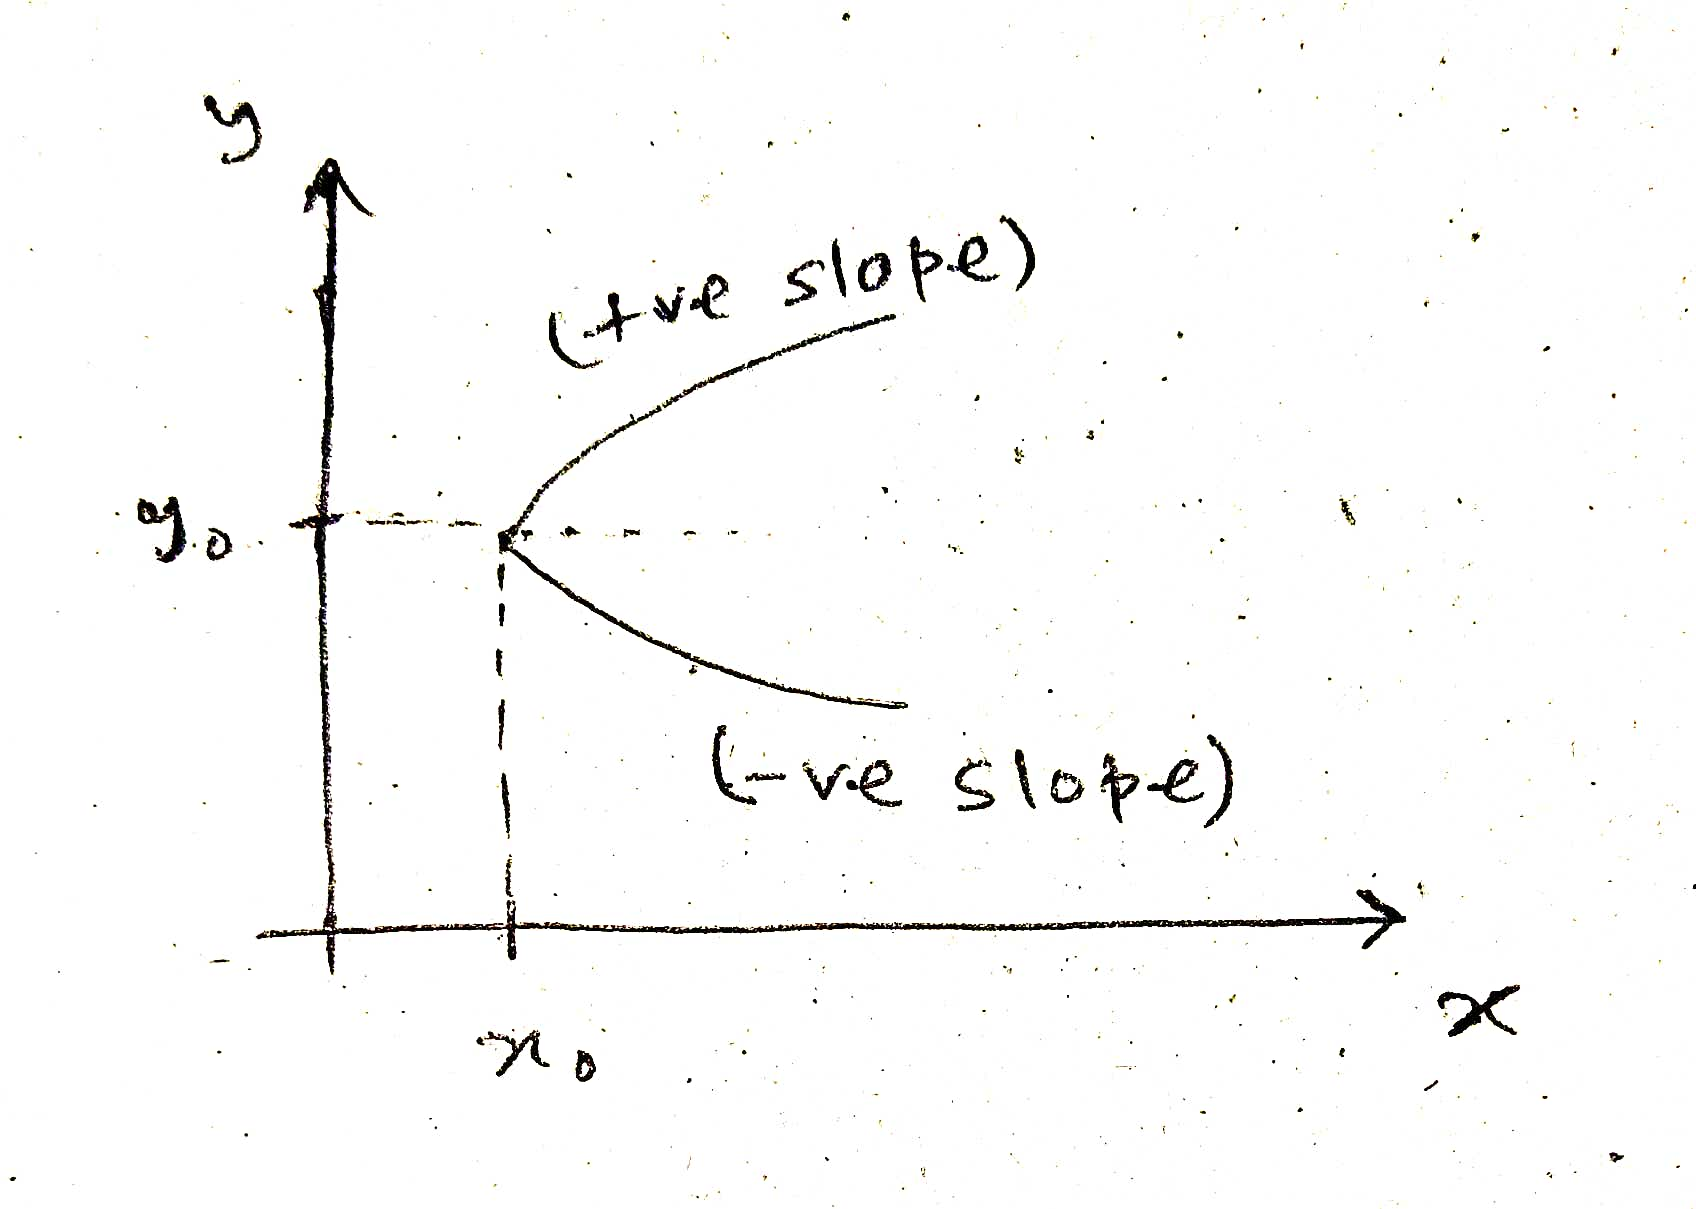 y
(+ve slope)
y₀
(-ve slope)
x₀
x